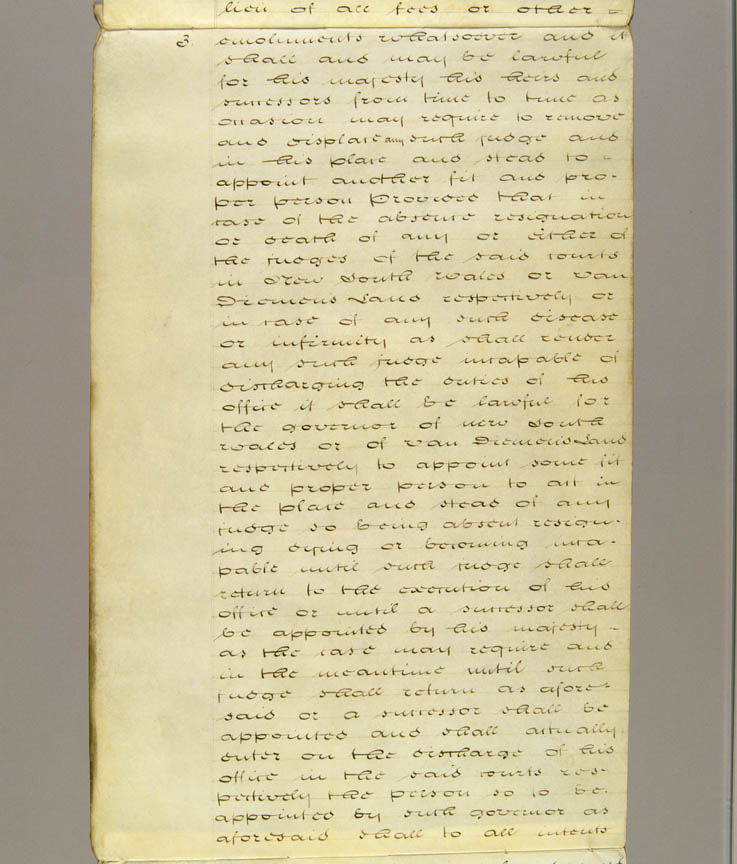 lieu of all fees or other =
3 emoluments whatsoever and it
shall and may be lawful
for his majesty his heirs and
successors from time to time as
occasion may require to remove
and displace any such judge and
in his place and stead to =
appoint another fit and pro-
per person Provided that in
case of the absence resignation
or death of any or either of
the judges of the said courts
in New South Wales or Van
Diemens Land respectively or
in case of any such disease
or infirmity as shall render
any such judge incapable of
discharging the duties of his
office it shall be lawful for
the governor of new South
Wales or of Van Diemens Land
respectively to appoint some fit
and proper person to act in
the place and stead of any
judge so being absent resign-
ing dying or becoming inca-
pable until such judge shall
return to the execution of his
office or until a successor shall
be appointed by his majesty -
as the case may require and
in the meantime until such
judge shall return as afore-
said or a successor shall be
appointed and shall actually
enter on the discharge of his
office in the said courts res-
pectively the person so to be
appointed by such governor as
aforesaid shall to all intents